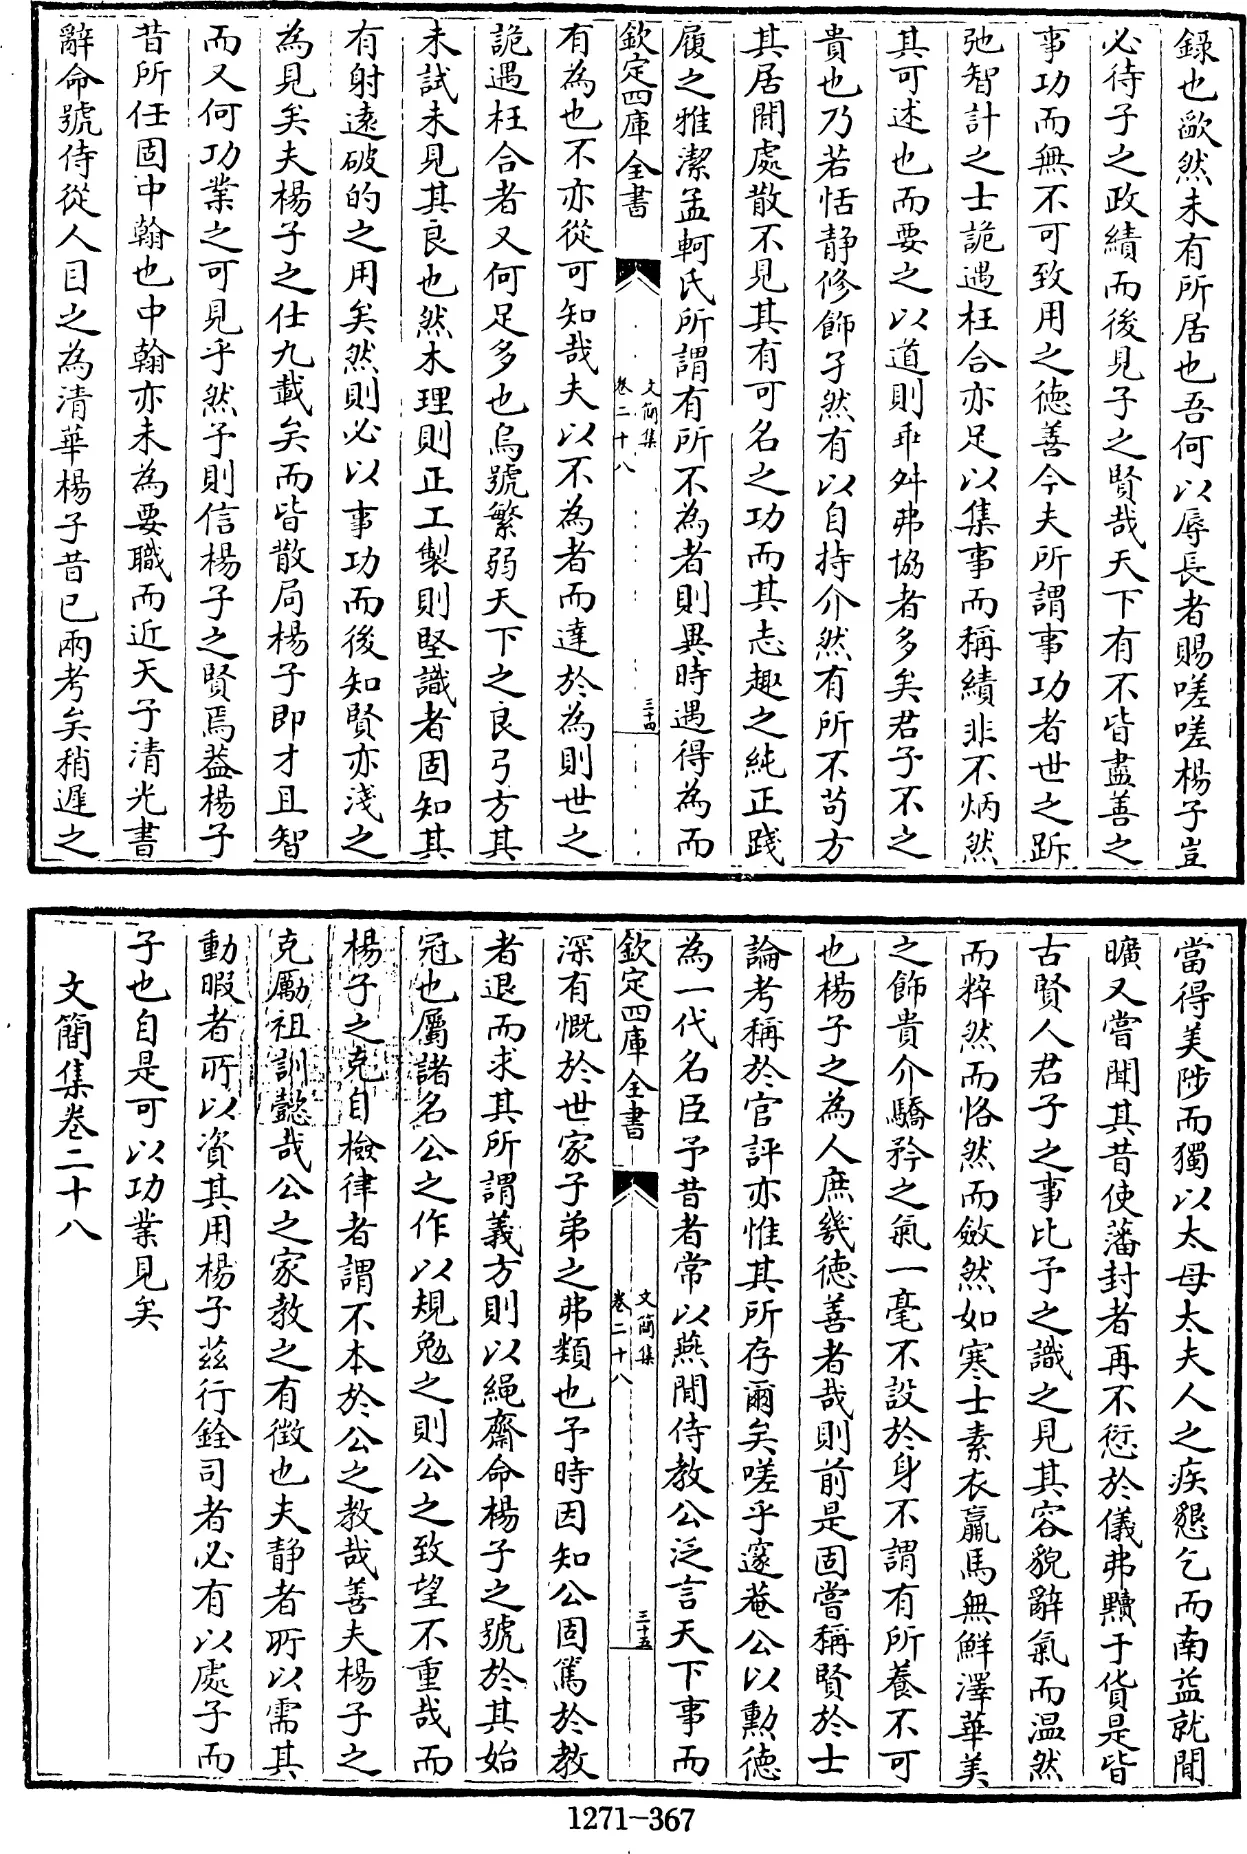 錄也歉然未有所居也吾何以辱長者賜嗟嗟楊子豈
必待子之政績而後見子之賢哉天下有不皆盡善之
事功而無不可致用之德善今夫所謂事功者世之跅
弛智計之士詭遇枉合亦足以集事而稱績非不炳然
其可述也而要之以道則乖舛弗協者多矣君子不之
貴也乃若恬静修飾孑然有以自持介然有所不苟方
其居閒處散不見其有可名之功而其志趣之純正踐
履之雅潔孟軻氏所謂有所不為者則異時遇得為而
欽定四庫全書
文簡集
卷二十八
三十四
有為也不亦從可知哉夫以不為者而達於為則世之
詭遇枉合者又何足多也烏號繁弱天下之良弓方其
未試未見其良也然木理則正工製則堅識者固知其
有射遠破的之用矣然則必以事功而後知賢亦淺之
為見矣夫楊子之仕九載矣而皆散局楊子即才且智
而又何功業之可見乎然予則信楊子之賢焉葢楊子
昔所任固中翰也中翰亦未為要職而近天子清光書
辭命號侍從人目之為清華楊子昔已兩考矣稍遲之
當得美陟而獨以太母太夫人之疾懇乞而南益就閒
曠又嘗聞其昔使藩封者再不愆於儀弗黷于貨是皆
古賢人君子之事比予之識之見其容貌辭氣而温然
而粹然而恪然而斂然如寒士素衣羸馬無鮮澤華美
之飾貴介驕矜之氣一毫不設於身不謂有所養不可
也楊子之為人庶幾德善者哉則前是固嘗稱賢於士
論考稱於官評亦惟其所存爾矣嗟乎邃菴公以勳德
為一代名臣予昔者常以燕閒侍教公泛言天下事而
欽定四庫全書
文簡集
卷二十八
三十五
深有慨於世家子弟之弗類也予時因知公固篤於教
者退而求其所謂義方則以繩齋命楊子之號於其始
冠也屬諸名公之作以規勉之則公之致望不重哉而
楊子之克自檢律者謂不本於公之教哉善夫楊子之
克勵祖訓懿哉公之家教之有徵也夫静者所以需其
動暇者所以資其用楊子茲行銓司者必有以處子而
子也自是可以功業見矣
文簡集卷二十八
1271-367